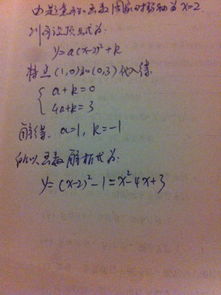 由题意得函数图象的对称轴为x=2
则可设顶点式为
y=a(x-2)²+k
将点(1,0)和(0,3)代入得
{a+k=0
4a+k=3
解得 a=1, k=-1
所以函数解析式为
y=(x-2)²-1=x²-4x+3